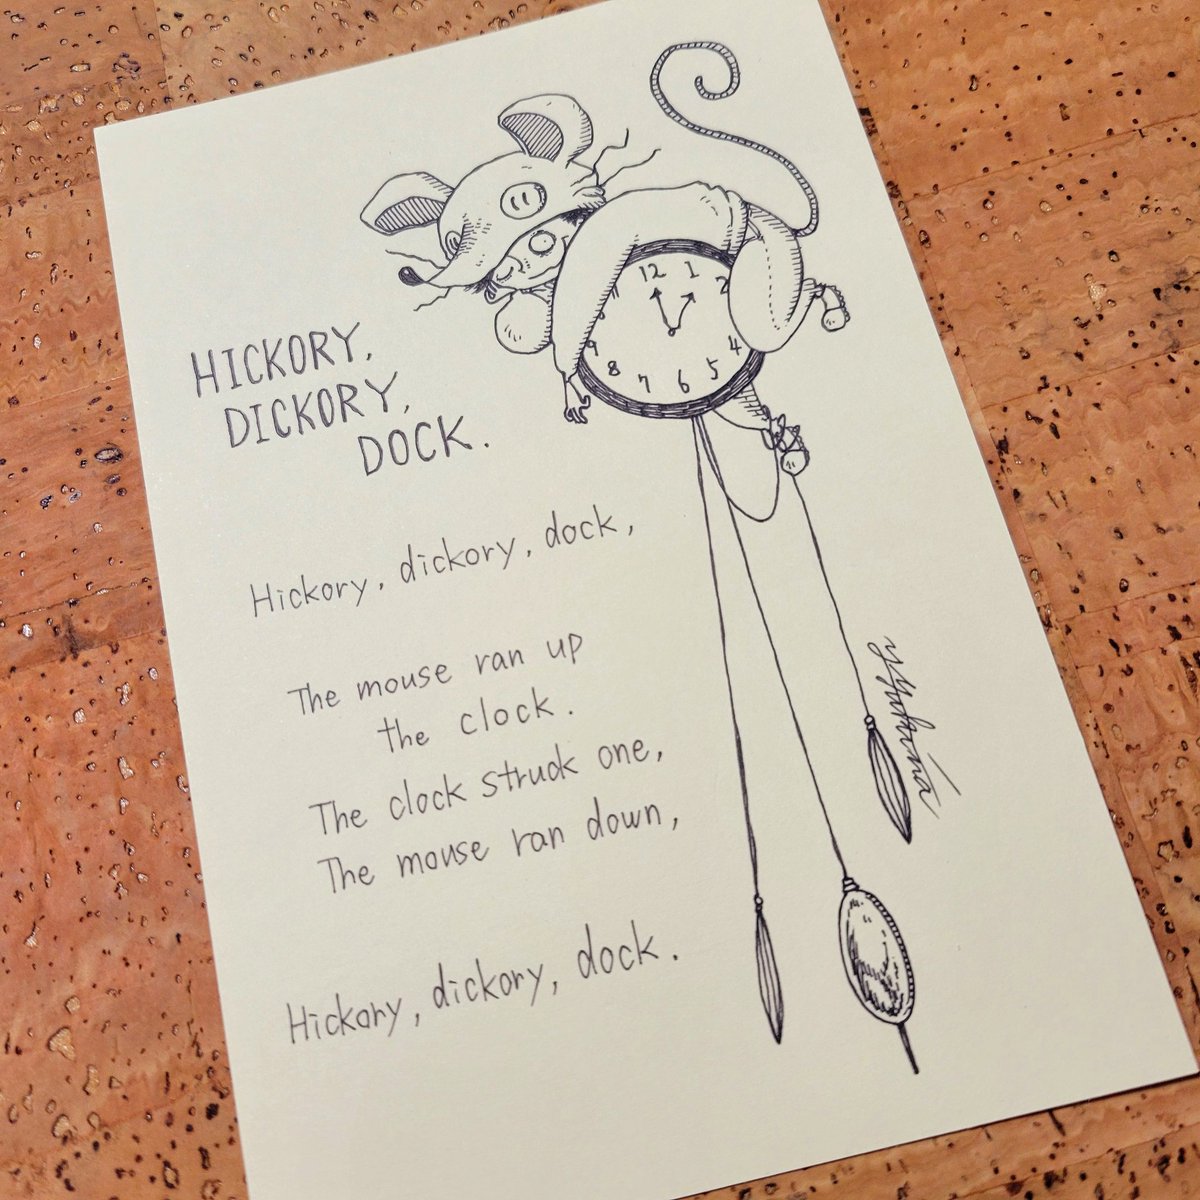 HICKORY,
DICKORY,
DOCK.
12 1 2
4
5
6
7
8
9
Hickory, dickory, dock,
The mouse ran up
the clock.
The clock struck one,
The mouse ran down,
Hickory, dickory, dock.